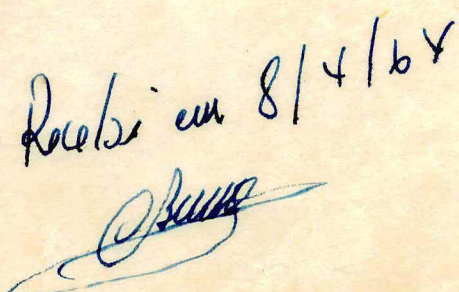 Recebi em 8/4/64